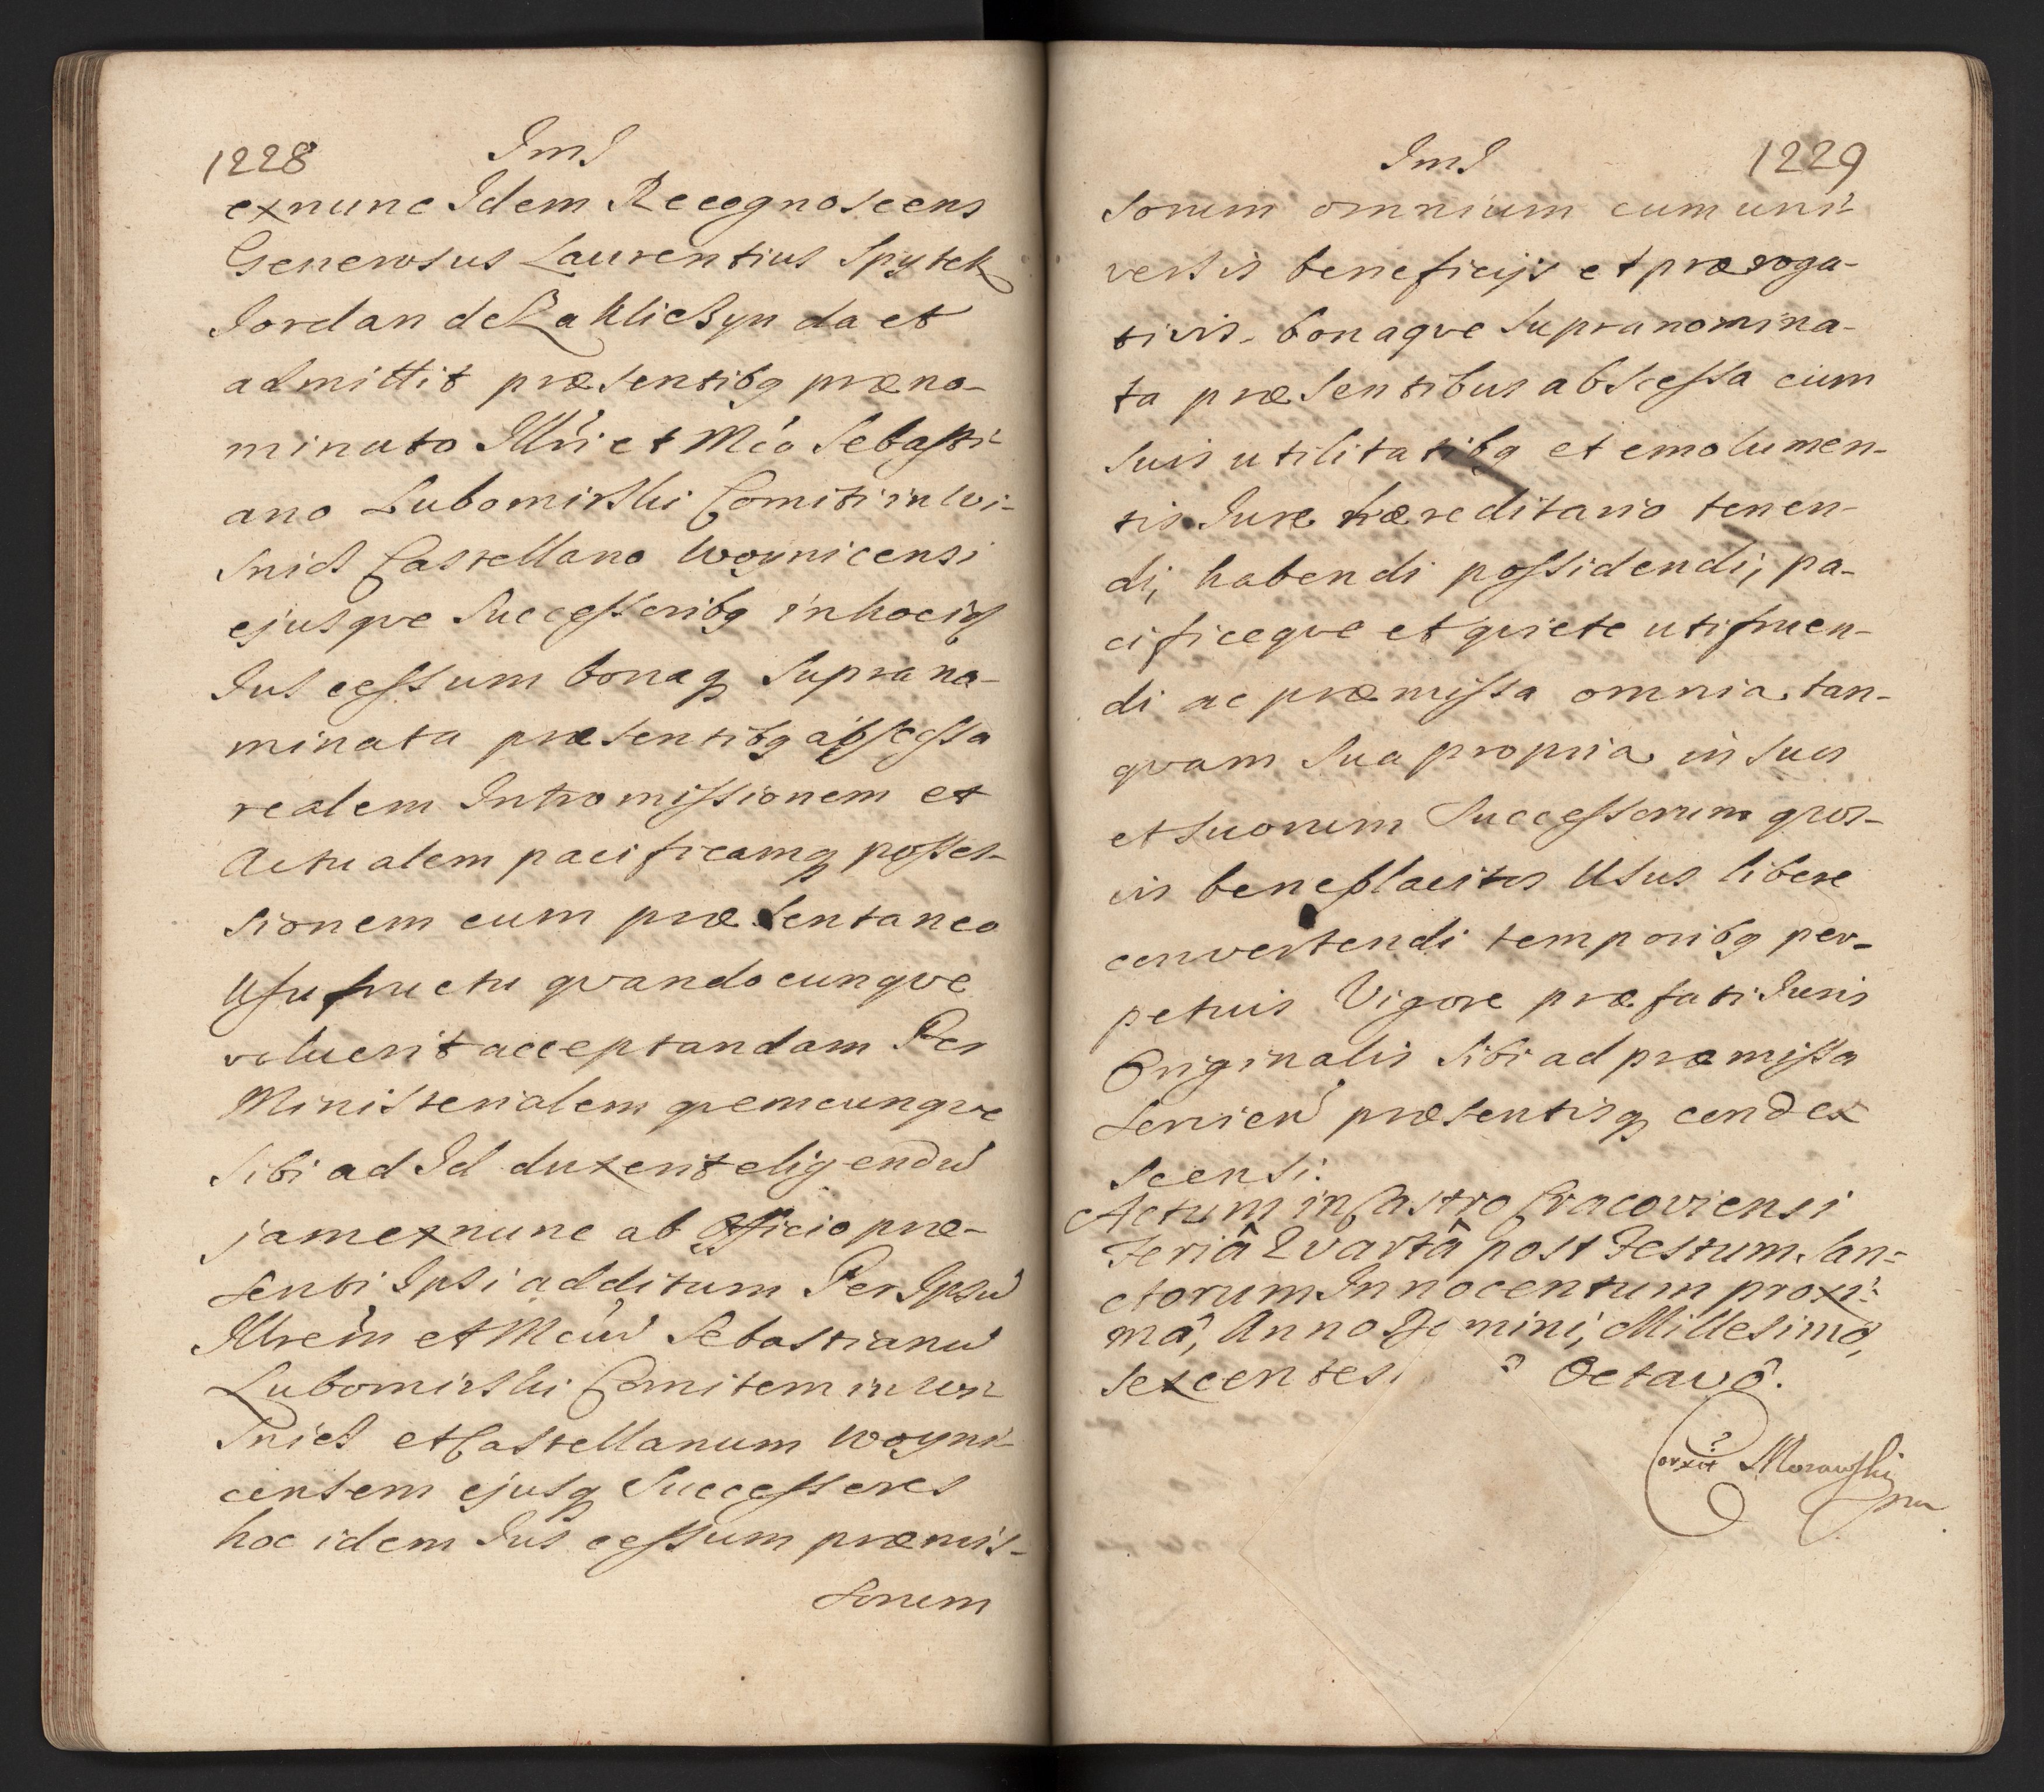 1228
ImJ
exnunc Idem Recognoscens
Generosus Laurentius Spytek
Jordan de Zakliczyn da et
admittit præsentibq præno-
minato Illri et Mco Sebasti-
ano Lubomirski Comiti in Wi-
snicz Castellano Woynicensi
ejusque Successoribq in hoc id
Jus cessum bonaq Suprano-
minata præsentibq abscessa
realem Intromissionem et
Actualem pacificamq posses-
sionem cum præsentaneo
Usufructu quandocunque
voluerit acceptandam Per
Ministerialem quemcunque
Sibi ad Id duxerit eligendu
jamexnunc ab Officio præ-
senti Ipsi additum Per Ipsu
Illrem et Mcu Sebastianu
Lubomirski Comitem in Wi-
snicz et Castellanum Woyni-
censem ejusq Successores
hoc idem Jus cessum præmis-
sorum
ImJ
1229
sorum omnium cum uni-
versis beneficijs et præroga-
tivis. bonaque Supranomina-
ta præsentibus abscessa cum
suis utilitatibq et emolumen-
tis Jure hæreditario tenen-
di, habendi possidendi, pa-
cificeque et quiete utifruen-
di ac præmissa omnia tan-
quam sua propria in suos
et suorum Successorum quos-
vis beneplacitos Usus libere
convertendi temporibq per-
petuis Vigore præfati Juris
Originalis Sibi ad præmissa
servien præsentisq conde-
scensi.
Actum in Castro Cracoviensi
Feriâ Qvartâ post Festum San-
ctorum Innocentum proxi-
mâ, Anno Domini, Millesimô,
Sexcentesi Octavô.
Corxit Morawski
mp